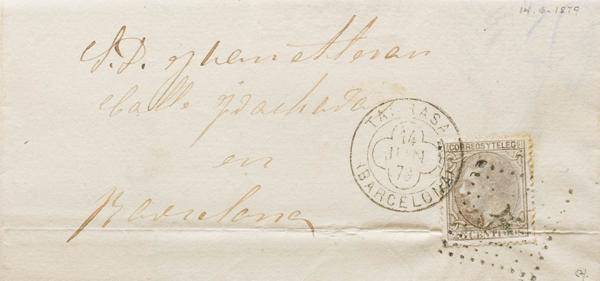 14. 6-1879
S. D. Juan
Calle
en
Barcelona
TARRASA
14
JUN
79
(BARCELONA)
CORREOS Y TELEG
5 CENTIMOS